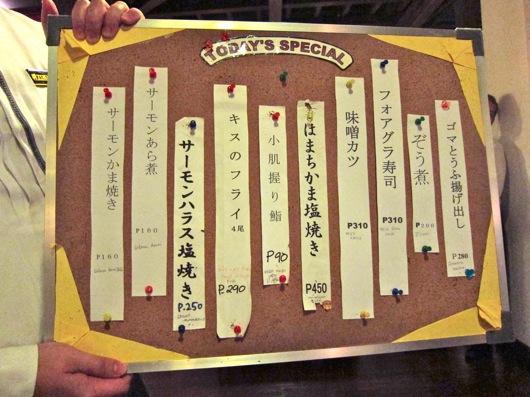 TODAY'S SPECIAL
ゴマとうふ揚げ出し
P280
ぞう煮
P200
フォアグラ寿司
P310
味噌カツ
P310
はまちかま塩焼き
P450
小肌握り鮨
P90
キスのフライ 4尾
P.290
サーモンハラス塩焼き
P.250
サーモンあら煮
P160
サーモンかま焼き
P160